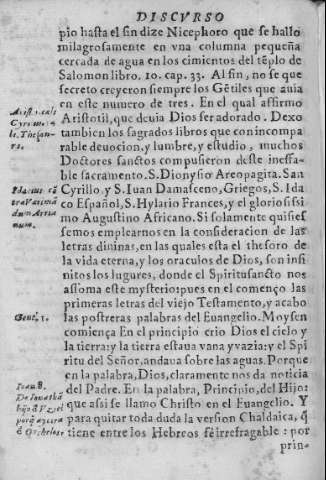 DISCVRSO
pio hasta el fin dize Nicephoro que se hallo
milagrosamente en vna columna pequeña
cercada de agua en los cimientos del tẽplo de
Salomon libro. 10. cap. 33. Al fin, no se que
secreto creyeron siempre los Gẽtiles que auia
en este numero de tres. En el qual affirmo
Aristotil, que deuia Dios ser adorado. Dexo
tambien los sagrados libros que con incompa
rable deuocion, y lumbre, y estudio, muchos
Doctores sanctos compusieron deste ineffa-
ble sacramento. S. Dionysio Areopagita. San
Cyrillo y S. Iuan Damasceno, Griegos, S. Ida
co Español, S. Hylario Frances, y el gloriosissi
mo Augustino Africano. Si solamente quisies
semos emplearnos en la consideracion de las
letras diuinas, en las quales esta el thesoro de
la vida eterna, y los oraculos de Dios, son infi
nitos los lugares, donde el Spiritusancto nos
assoma este mysterio: pues en el començo las
primeras letras del viejo Testamento, y acabo
las postreras palabras del Euangelio. Moysen
comiença En el principio crio Dios el cielo y
la tierra: y la tierra estaua vana y vazia: y el Spi
ritu del Señor, andaua sobre las aguas. Porque
en la palabra, Dios, claramente nos da noticia
del Padre. En la palabra, Principio, del Hijo:
que assi se llamo Christo en el Euangelio. Y
para quitar toda duda la version Chaldaica, q̃
tiene entre los Hebreos fe irrefragable: por
prin-
Cyri
le. Thesau-
ro.
Idacus cõ
tra Varimã
dum Arria
num.
Gene. 1.
Ioan. 8.
De Ionathã
hijo d̃ Vziel